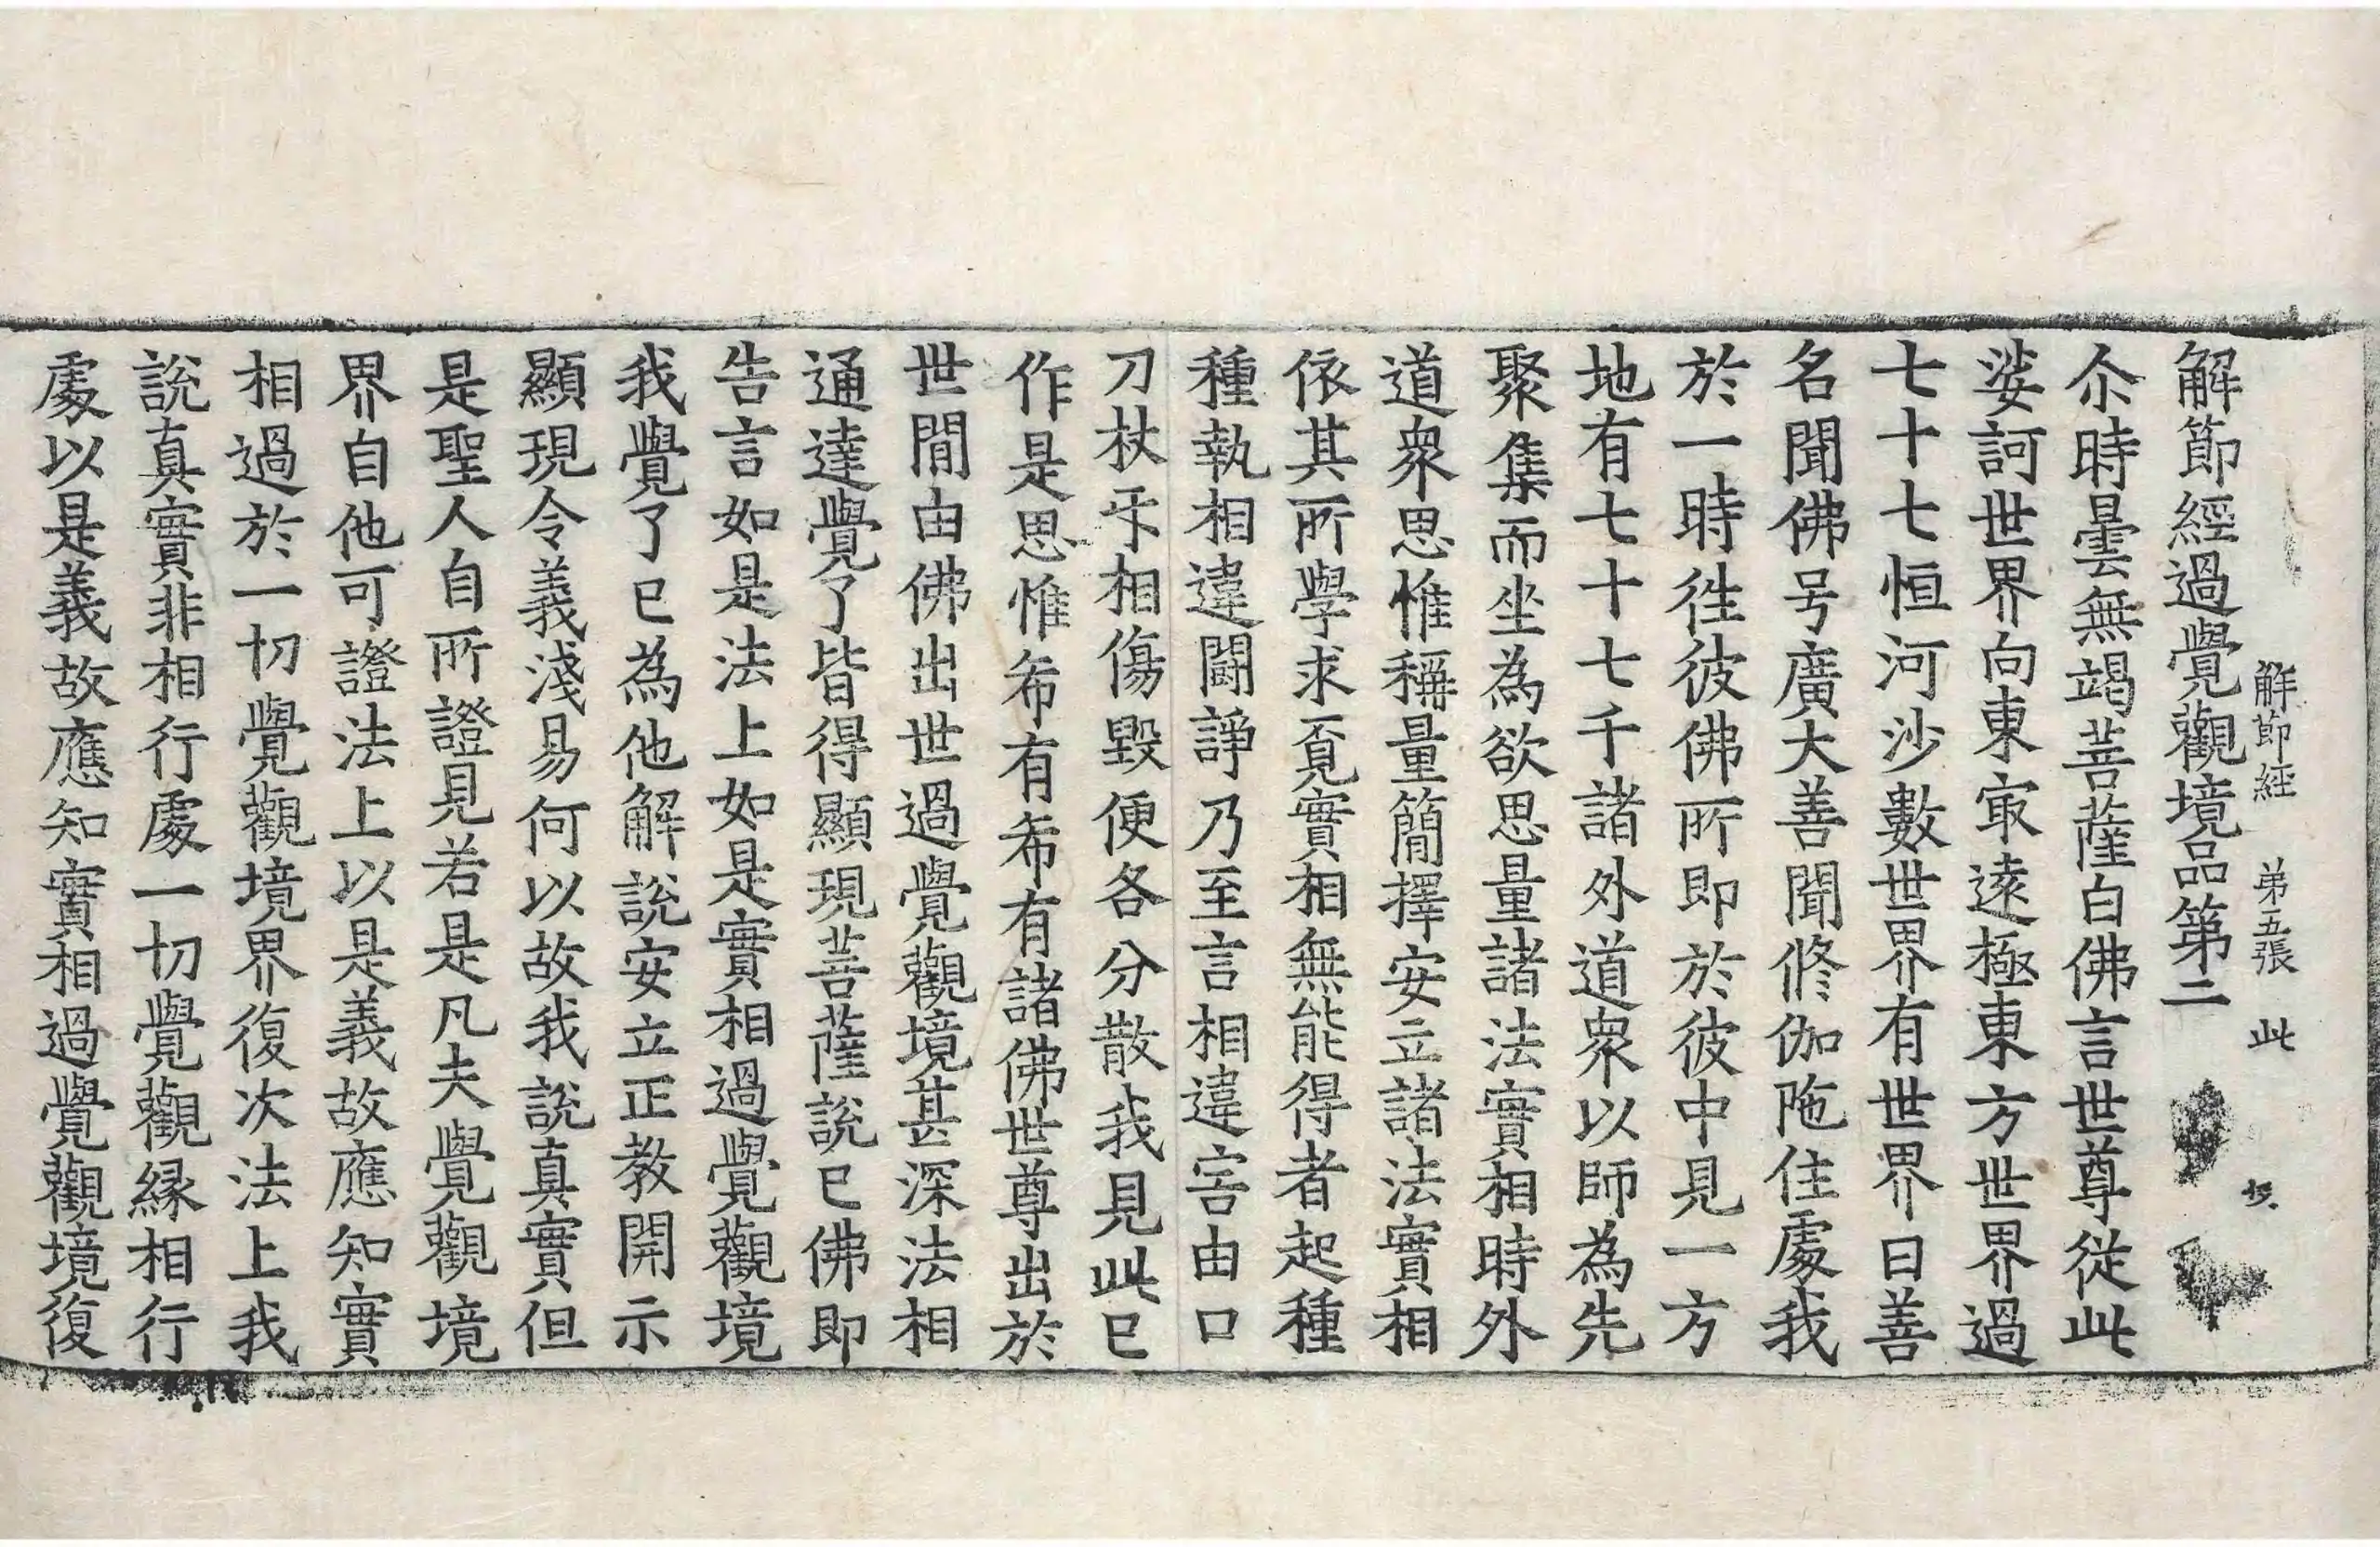 解節經　第五張　此
解節經過覺觀境品第二
尒時曇無竭菩薩白佛言世尊從此
娑訶世界向東㝡遠極東方世界過
七十七恒河沙數世界有世界曰善
名聞佛号廣大善聞修伽陁住處我
於一時徃彼佛所即於彼中見一方
地有七十七千諸外道衆以師為先
聚集而坐為欲思量諸法實相時外
道衆思惟稱量簡擇安立諸法實相
依其所學求覓實相無能得者起種
種執相違鬪諍乃至言相違害由口
刀杖㸦相傷毀便各分散我見此已
作是思惟希有希有諸佛世尊出於
世間由佛出世過覺觀境甚深法相
通達覺了皆得顯現菩薩說已佛即
告言如是法上如是實相過覺觀境
我覺了已為他解說安立正教開示
顯現令義淺易何以故我說真實但
是聖人自所證見若是凡夫覺觀境
界自他可證法上以是義故應知實
相過於一切覺觀境界復次法上我
說真實非相行處一切覺觀緣相行
處以是義故應知實相過覺觀境復